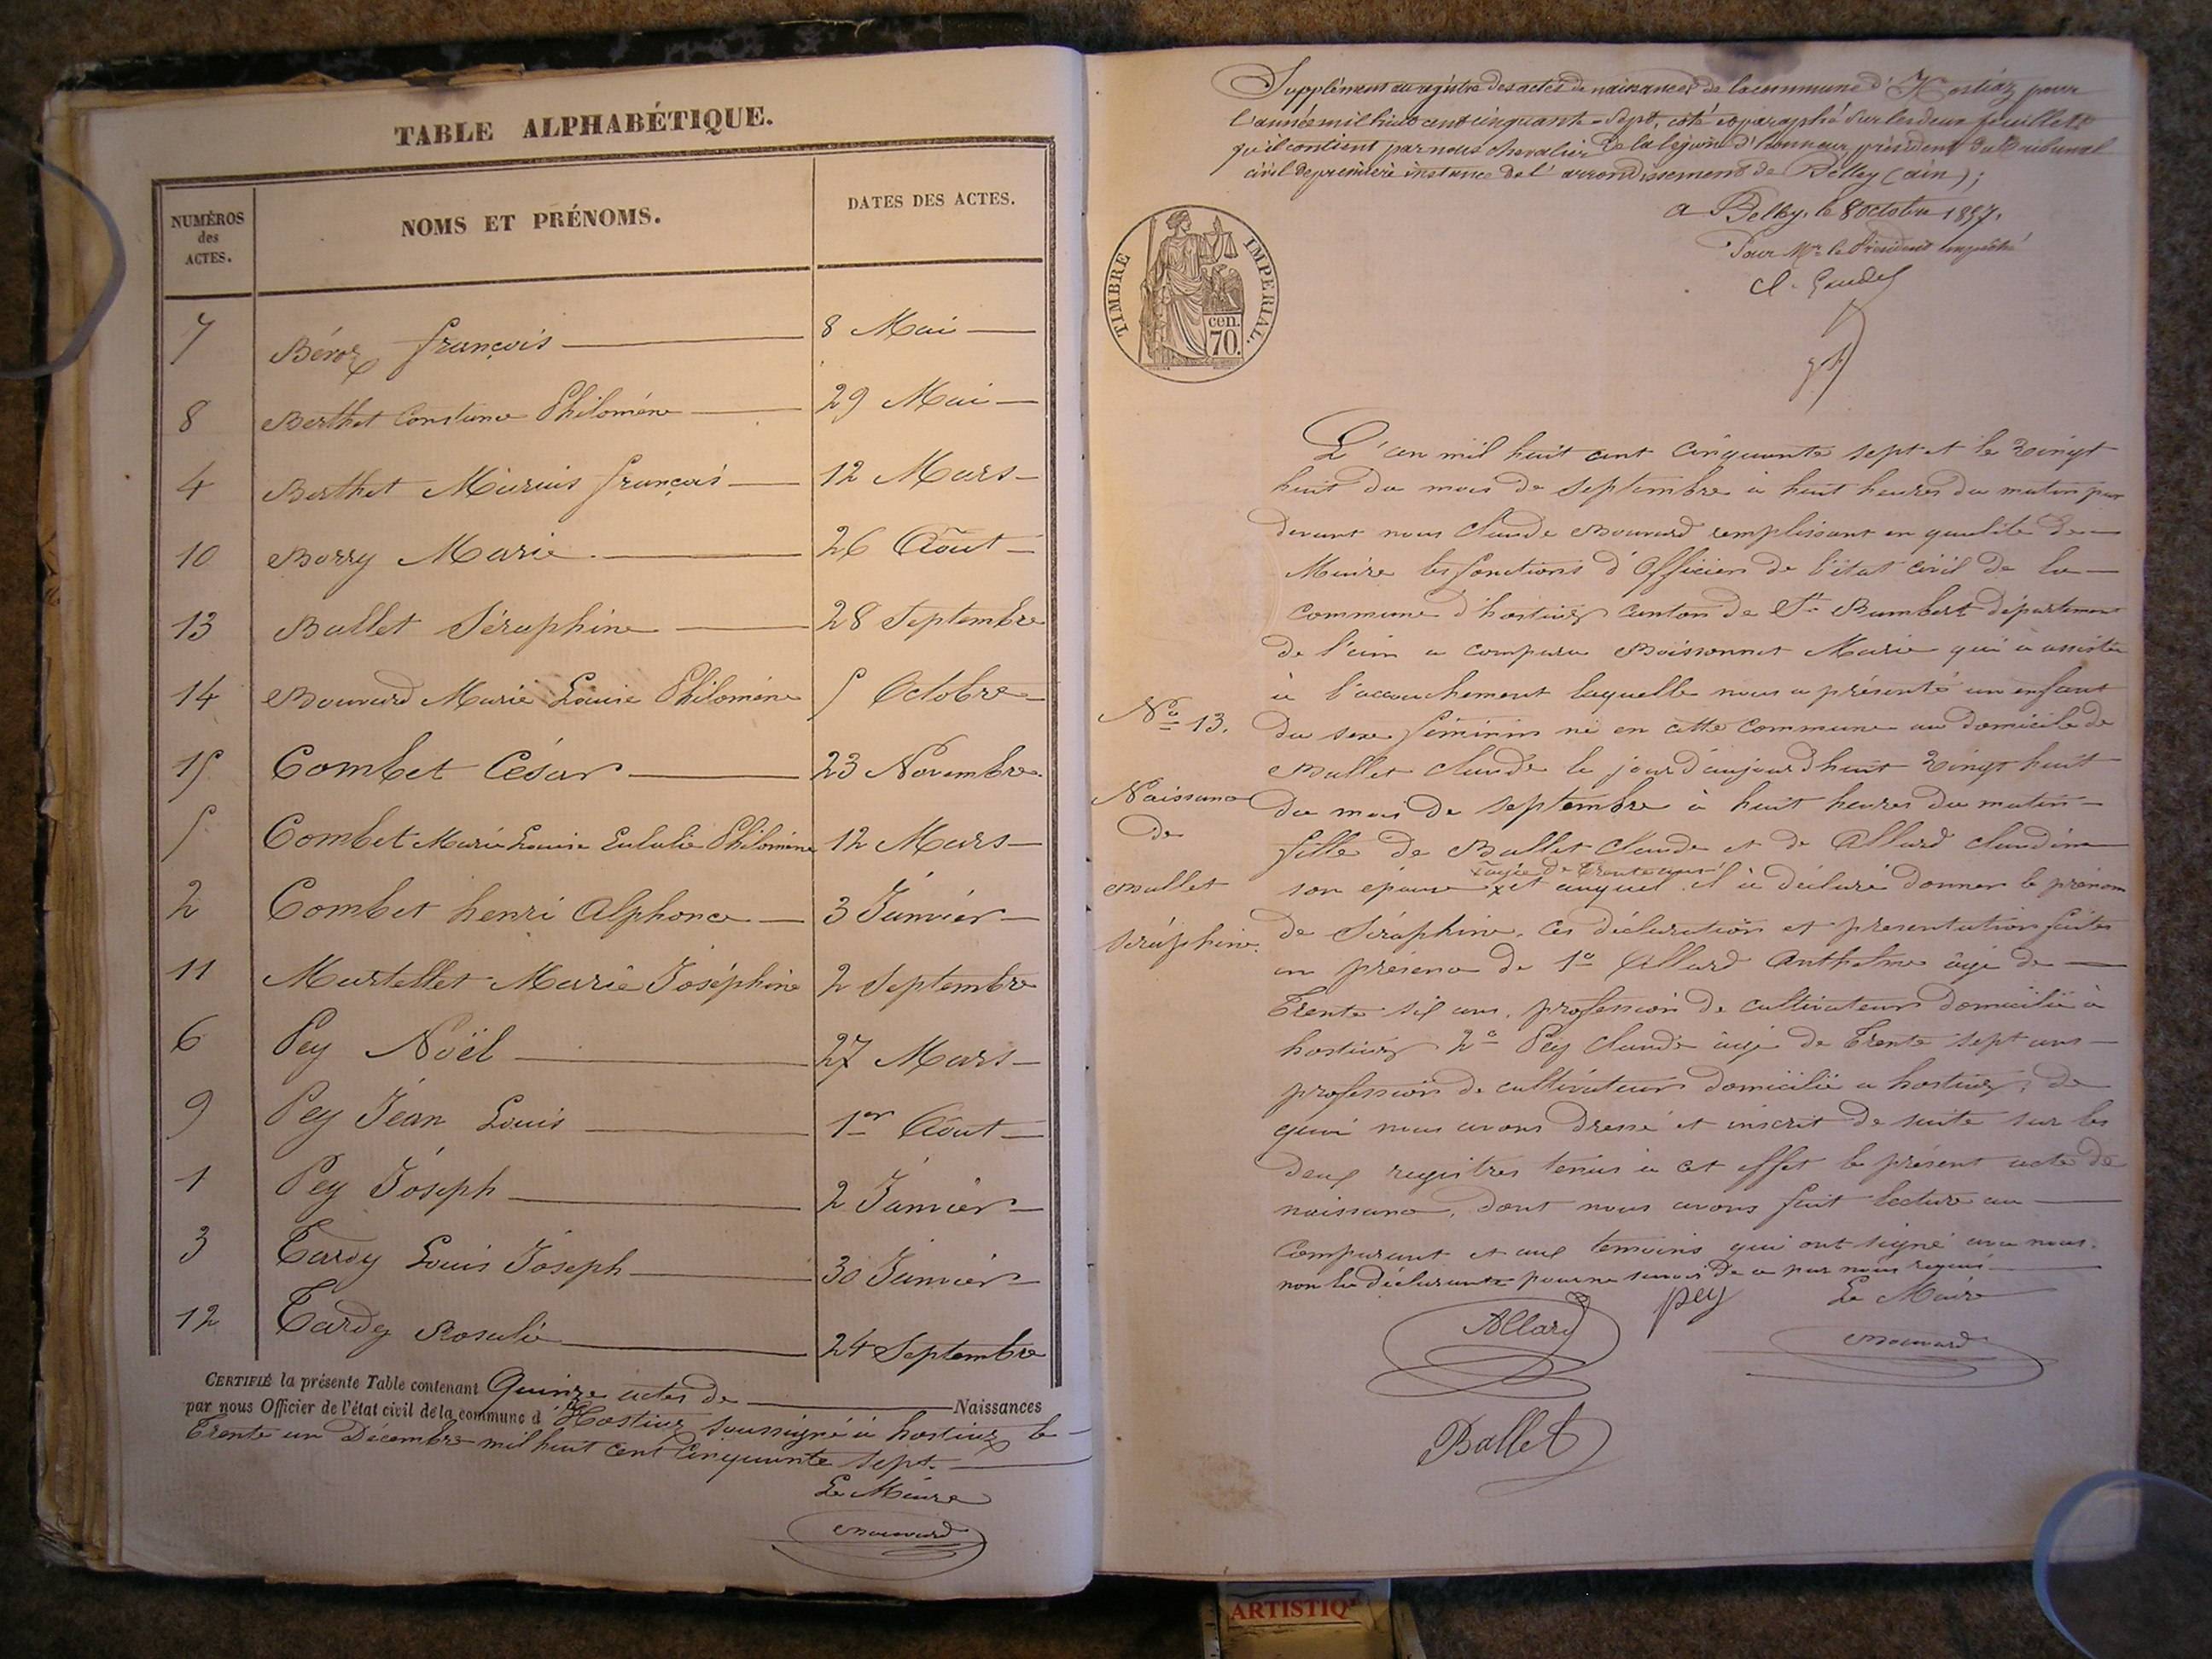 TABLE ALPHABÉTIQUE.
NUMÉROS des ACTES. NOMS ET PRÉNOMS. DATES DES ACTES.
7 Béroz françois 8 Mai
8 Berthet Constance Philomène 29 Mai
4 Berthet Marius françois 12 Mars
10 Borry Marie 26 Août
13 Ballet Séraphine 28 Septembre
14 Bouvard Marie Louise Philomène 5 Octobre
15 Combet César 23 Novembre
5 Combet Marie Louise Eulalie Philomène 12 Mars
2 Combet henri Alphonce 3 Janvier
11 Martellet Marie Joséphine 2 Septembre
6 Pey Noël 27 Mars
9 Pey Jéan Louis 1er Août
1 Pey Joseph 2 Janvier
3 Tardy Louis Joseph 30 Janvier
12 Tardy Rosalie 24 Septembre
CERTIFIÉ la présente Table contenant Quinze actes de Naissances
par nous Officier de l'état civil de la commune d'Hostiaz soussigné à hostiaz le
Trente un Décembre mil huit cent Cinquante sept.
Le Maire
Bouvard
Supplément au registre des actes de naissances de la commune d'Hostiaz pour
l'année mil huit cent cinquante-sept, coté et paraphé sur les deux feuillets
qu'il contient par nous chevalier de la légion d'honneur, président du tribunal
civil de première instance de l'arrondissement de Belley (ain);
a Belley, le 8 octobre 1857.
Pour Mr le Président empêché
TIMBRE IMPERIAL.
cen.
70.
L'an mil huit cent cinquante sept et le vingt
huit du mois de septembre à huit heures du matin par
devant nous Claude Bouvard remplissant en qualité de
Maire les fonctions d'Officier de l'état civil de la
commune d'hostiaz canton de St Rambert département
de l'ain a comparu Boissonnet Marie qui a assisté
à l'accouchement laquelle nous a présenté un enfant
du sexe féminin né en cette commune au domicile de
Ballet Claude le jour d'aujourd'huit vingt huit
du mois de septembre à huit heures du matin
fille de Ballet Claude et de Allard Claudine
xagée de Trente ans
son épouse x et auquel il à déclaré donner le prénom
de Séraphine. Ces déclaration et présentation faites
en présence de 1º Allard Anthelme âgé de
Trente six ans, profession de cultivateur domicilié à
hostiaz 2º Pey Claude âgé de Trente sept ans
profession de cultivateur domicilié a hostiaz; de
quoi nous avons dressé et inscrit de suite sur les
deux registres tenus à cet effet le présent acte de
naissance, dont nous avons fait lecture au
Comparant et aux temoins qui ont signé avec nous.
non la déclarante pour ne savoir de ce par nous requis
Nº 13.
Naissance
de
Ballet
Séraphine.
Allard pey Le Maire
Bouvard
Ballet